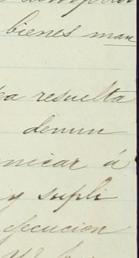 bienes man
ea resuelta
denun
nicar á
y supli
ejecucion